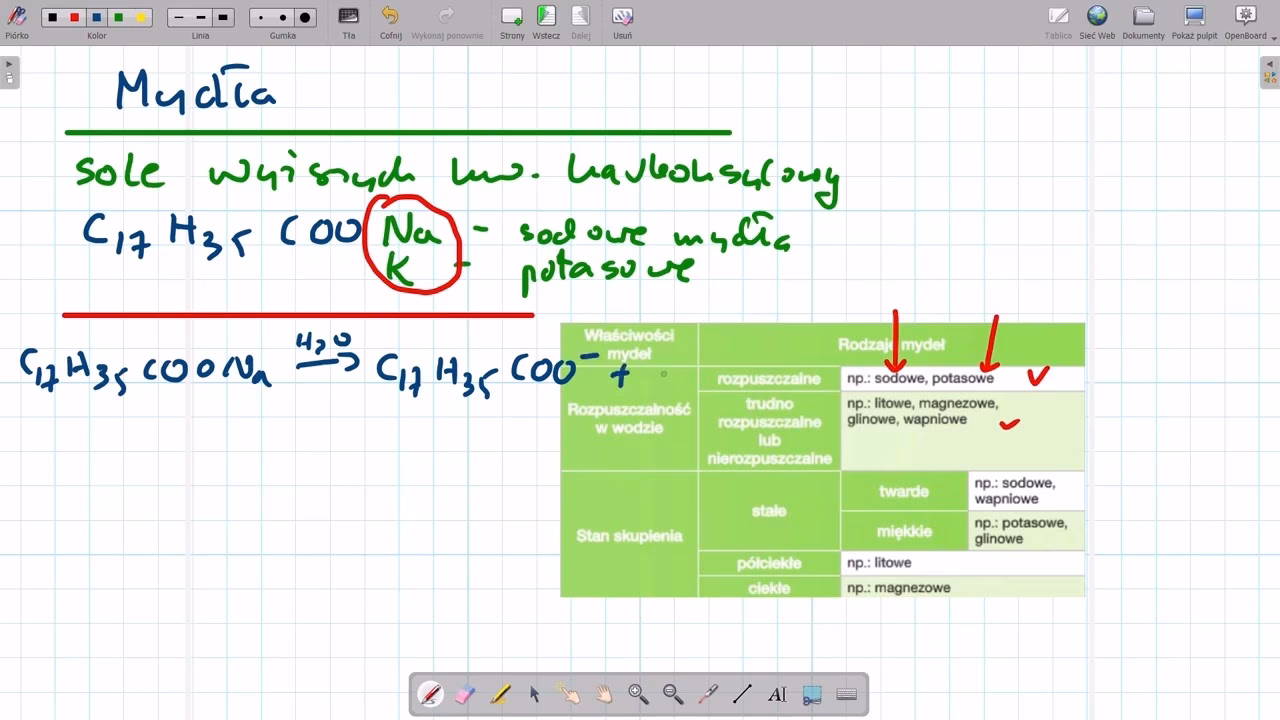 Piórko
Kolor
Linia
Gumka
Tła
Cofnij
Wykonaj ponownie
Strony
Wstecz
Dalej
Usuń
Tablica
Sieć Web
Dokumenty
Pokaż pulpit
OpenBoard
Mydła
sole wyższych kw. karboksylowy
C17H35COONa - sodowe mydła
K - potasowe
C17H35COONa H2O → C17H35COO⁻ +
Właściwości mydeł
Rodzaje mydeł
Rozpuszczalność w wodzie
rozpuszczalne
np.: sodowe, potasowe
trudno
rozpuszczalne
lub
nierozpuszczalne
np.: litowe, magnezowe,
glinowe, wapniowe
Stan skupienia
stałe
twarde
np.: sodowe,
wapniowe
miękkie
np.: potasowe,
glinowe
półciekłe
np.: litowe
ciekłe
np.: magnezowe
AI